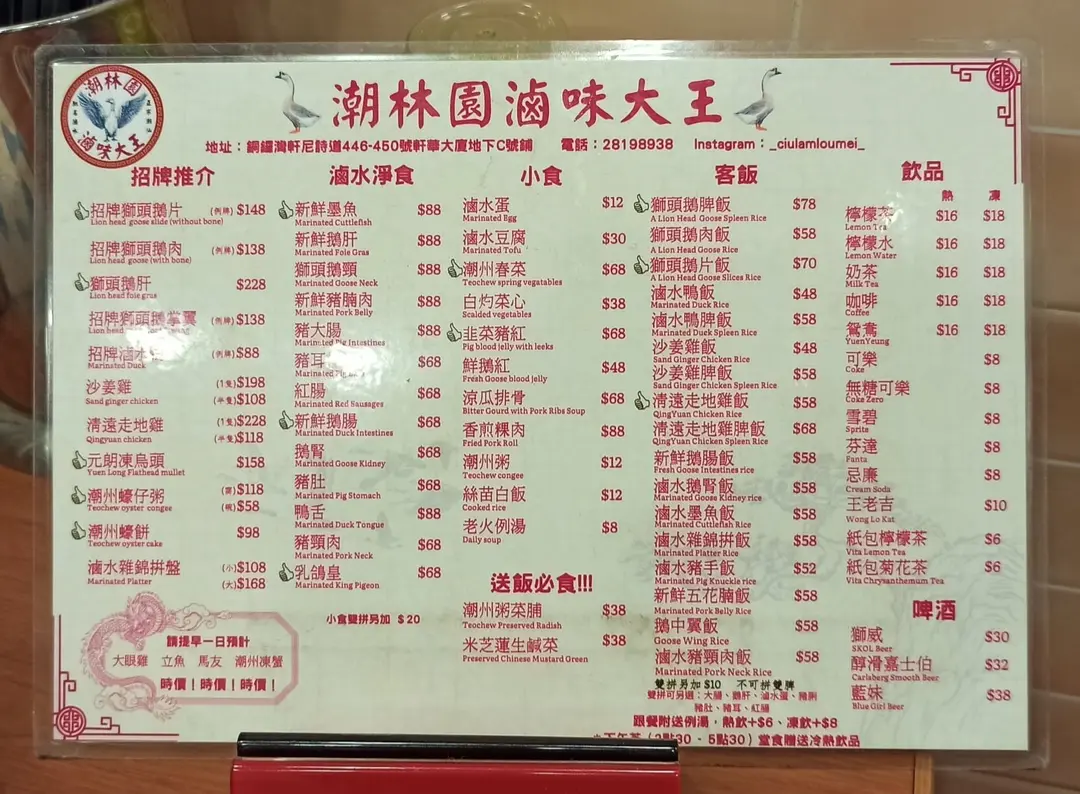 潮林園
滷味大王
潮林園滷味大王
地址：銅鑼灣軒尼詩道446-450號軒華大廈地下C號鋪 電話：28198938 Instagram：_ciulamloumei_
招牌推介
招牌獅頭鵝片 (例牌) $148
Lion head goose slide (without bone)
招牌獅頭鵝肉 (例牌) $138
Lion head goose (with bone)
獅頭鵝肝 $228
Lion head foie gras
招牌獅頭鵝掌翼 (例牌) $138
Lion head
招牌滷水 (例牌) $88
Marinated Duck
沙姜雞 (1隻) $198
Sand ginger chicken (半隻) $108
清遠走地雞 (1隻) $228
Qingyuan chicken (半隻) $118
元朗凍烏頭 $158
Yuen Long Flathead mullet
潮州蠔仔粥 (窩) $118
Teochew oyster congee (碗) $58
潮州蠔餅 $98
Teochew oyster cake
滷水雜錦拼盤 (小) $108
Marinated Platter (大) $168
請提早一日預計
大眼雞 立魚 馬友 潮州凍蟹
時價！時價！時價！
滷水淨食
新鮮墨魚 $88
Marinated Cuttlefish
新鮮鵝肝 $88
Marinated Foie Gras
獅頭鵝頸 $88
Marinated Goose Neck
新鮮豬腩肉 $88
Marinated Pork Belly
豬大腸 $88
Marinated Pig Intestines
豬耳 $68
Marinated Pig
紅腸 $68
Marinated Red Sausages
新鮮鵝腸 $68
Marinated Duck Intestines
鵝腎 $68
Marinated Goose Kidney
豬肚 $68
Marinated Pig Stomach
鴨舌 $88
Marinated Duck Tongue
豬頸肉 $68
Marinated Pork Neck
乳鴿皇 $68
Marinated King Pigeon
小食雙拼另加 $20
小食
滷水蛋 $12
Marinated Egg
滷水豆腐 $30
Marinated Tofu
潮州春菜 $68
Teochew spring vegatables
白灼菜心 $38
Scalded vegetables
韭菜豬紅 $68
Pig blood jelly with leeks
鮮鵝紅 $48
Fresh Goose blood jelly
涼瓜排骨 $68
Bitter Gourd with Pork Ribs Soup
香煎粿肉 $88
Fried Pork Roll
潮州粥 $12
Teochew congee
絲苗白飯 $12
Cooked rice
老火例湯 $8
Daily soup
送飯必食!!!
潮州粥菜脯 $38
Teochew Preserved Radish
米芝蓮生鹹菜 $38
Preserved Chinese Mustard Green
客飯
獅頭鵝脾飯 $78
A Lion Head Goose Spleen Rice
獅頭鵝肉飯 $58
A Lion Head Goose Rice
獅頭鵝片飯 $70
A Lion Head Goose Slices Rice
滷水鴨飯 $48
Marinated Duck Rice
滷水鴨脾飯 $58
Marinated Duck Spleen Rice
沙姜雞飯 $48
Sand Ginger Chicken Rice
沙姜雞脾飯 $58
Sand Ginger Chicken Spleen Rice
清遠走地雞飯 $58
QingYuan Chicken Rice
清遠走地雞脾飯 $68
QingYuan Chicken Spleen Rice
新鮮鵝腸飯 $58
Fresh Goose Intestines rice
滷水鵝腎飯 $58
Marinated Goose Kidney rice
滷水墨魚飯 $58
Marinated Cuttlefish Rice
滷水雜錦拼飯 $58
Marinated Platter Rice
滷水豬手飯 $52
Marinated Pig Knuckle rice
新鮮五花腩飯 $58
Marinated Pork Belly Rice
鵝中翼飯 $58
Goose Wing Rice
滷水豬頸肉飯 $58
Marinated Pork Neck Rice
雙拼另加 $10 不可拼雙髀
雙拼可另選：大腸、鵝肝、滷水蛋、豬脷
豬肚、豬耳、紅腸
跟餐附送例湯，熱飲+$6、凍飲+$8
下午茶（2點30 - 5點30）堂食贈送冷熱飲品
飲品
熱 凍
檸檬茶 $16 $18
Lemon Tea
檸檬水 $16 $18
Lemon Water
奶茶 $16 $18
Milk Tea
咖啡 $16 $18
Coffee
鴛鴦 $16 $18
YuenYeung
可樂 $8
Coke
無糖可樂 $8
Coke Zero
雪碧 $8
Sprite
芬達 $8
Fanta
忌廉 $8
Cream Soda
王老吉 $10
Wong Lo Kat
紙包檸檬茶 $6
Vita Lemon Tea
紙包菊花茶 $6
Vita Chrysanthemum Tea
啤酒
獅威 $30
SKOL Beer
醇滑嘉士伯 $32
Carlsberg Smooth Beer
藍妹 $38
Blue Girl Beer